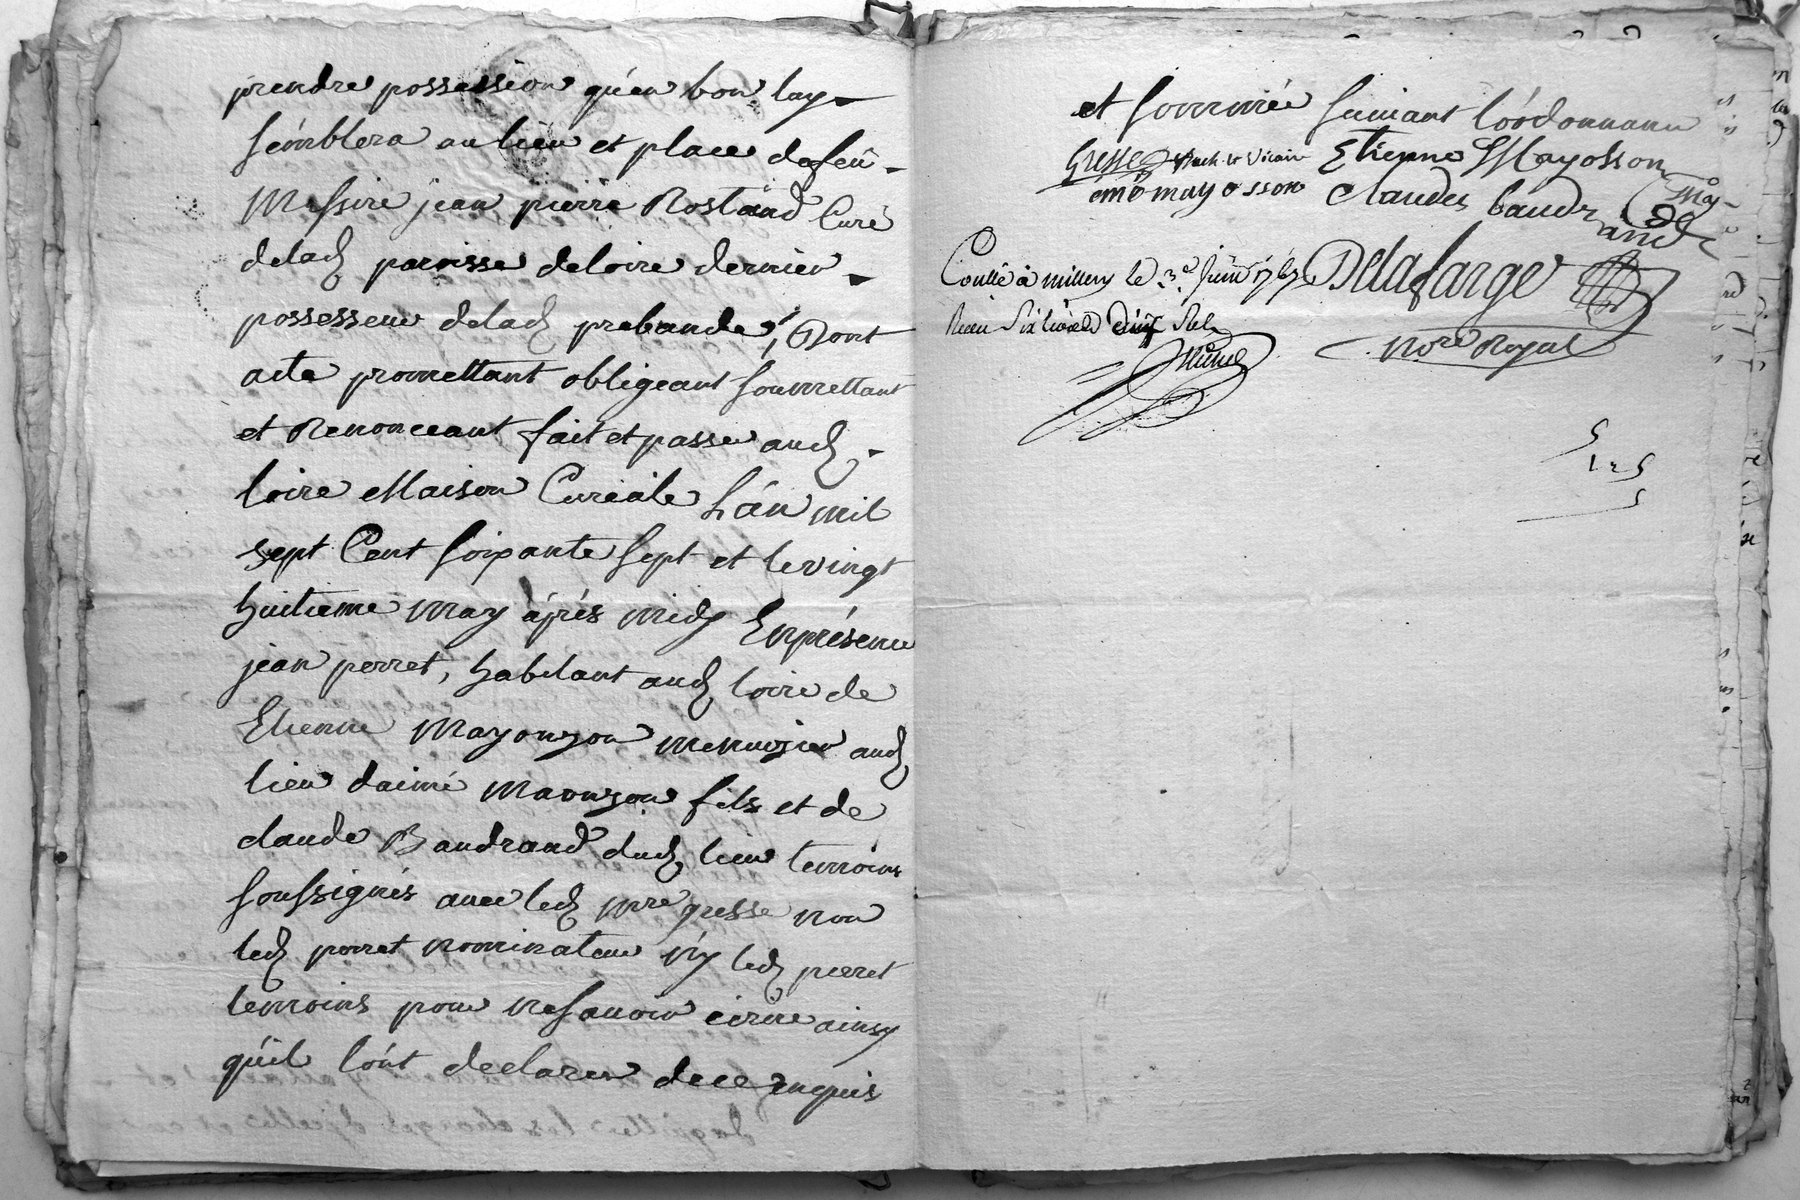 prendre possession qu'en bon luy
semblera au lieu et place de feû
Messire jean pierre Rostand Curé
delad. paroisse deloire dernier
possesseur delad. prebande, Dont
acte promettant obligeant soumettant
et Renonceant fait et passé aud.
loire Maison Curiale L'an mil
sept Cent soixante sept et le vingt
huitieme may âprés midy En présence
jean perret, habitant aud. loire de
Etienne Mayonson menuizier aud.
lieu d'aimé Maonzon fils et de
claude Baudrand dud. lieu temoins
soussignés avec led. mre gresse non
led. perret nominateur n'y led. perret
temoins pour ne savoir écrire ainsy
qu'il l'ont declaré de ce enquis
et sommée suivant l'ordonnance
Gresse Vicaire Etienne Mayosson
emé mayosson Claudes baudrand
Conllé à millery le 3e juin 1767 Delafarge
Reçu Six livres Nore Royal